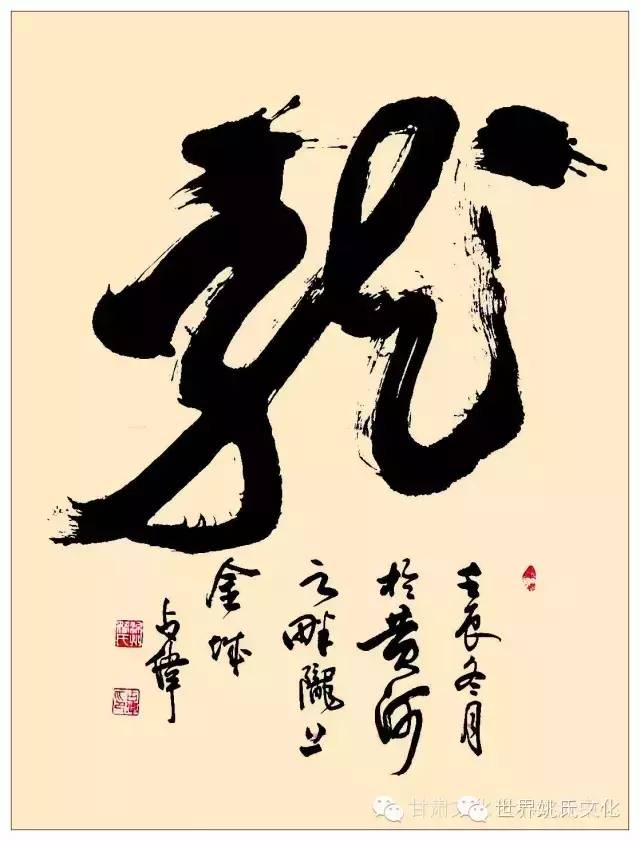 龍
壬辰冬月
於黄河
之畔隴上
金城
占偉
甘肃文化
世界姚氏文化